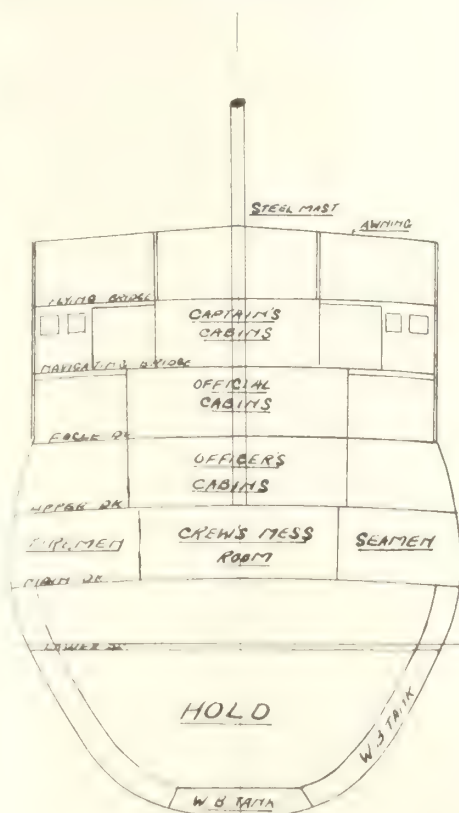 STEEL MAST
AWNING
FLYING BRIDGE
CAPTAIN'S
CABINS
NAVIGATING BRIDGE
OFFICIAL
CABINS
FOCLE DK
OFFICER'S
CABINS
UPPER DK
FIREMEN
CREW'S MESS
ROOM
SEAMEN
MAIN DK
LOWER DK
HOLD
W B TANK
W B TANK